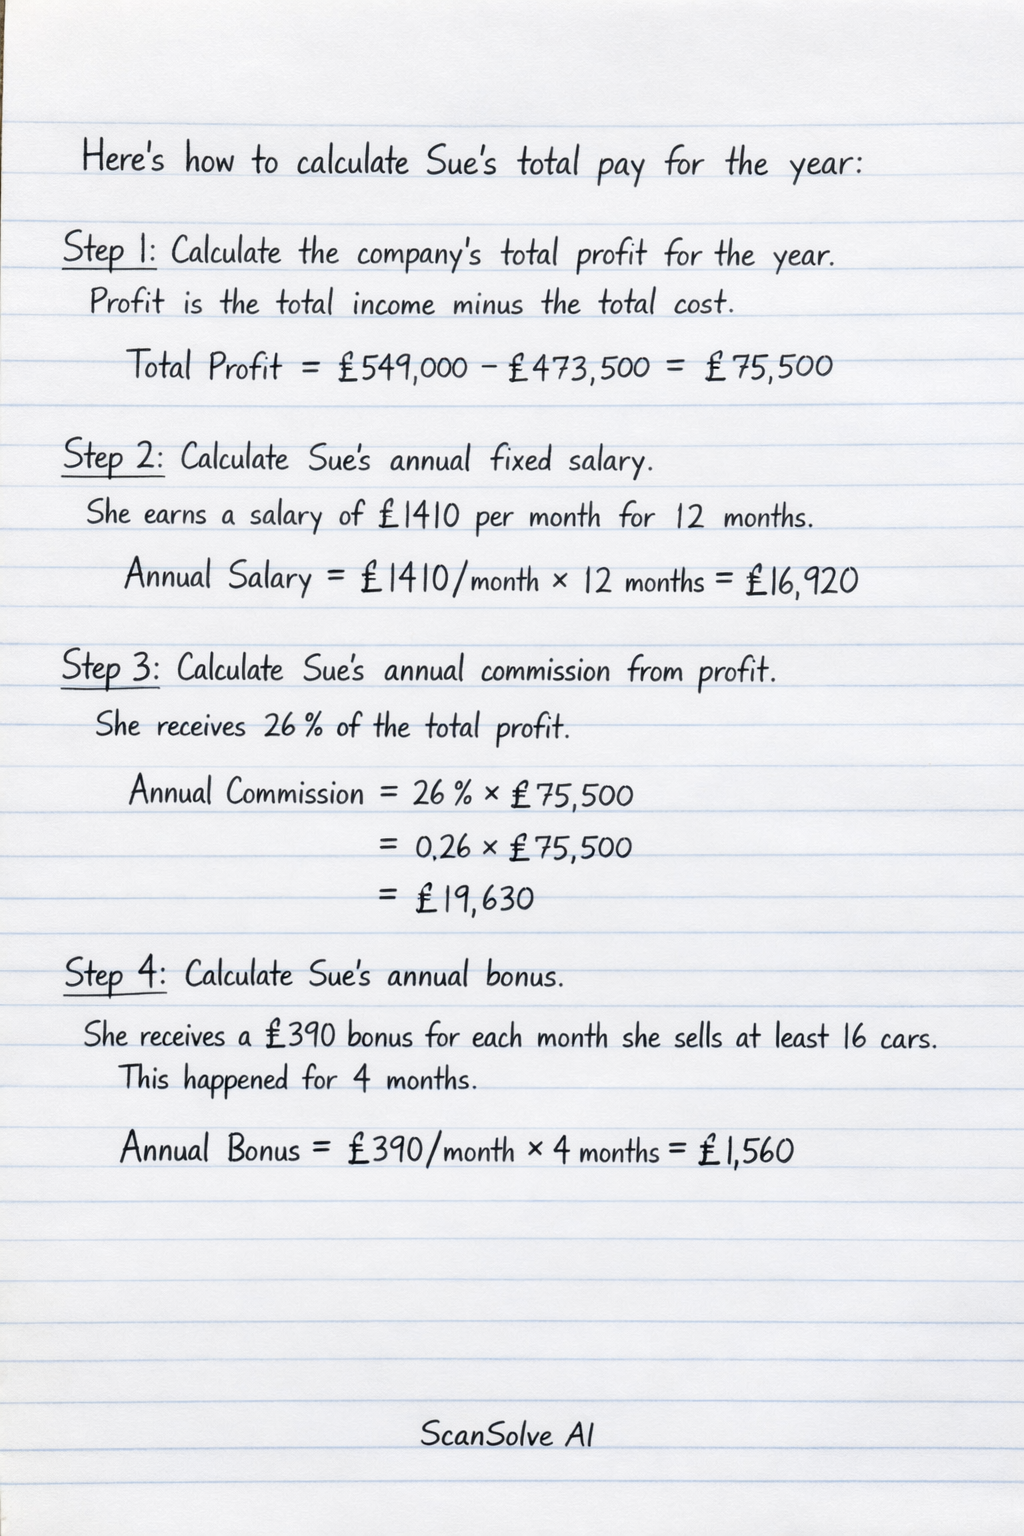 Here's how to calculate Sue's total pay for the year:
Step 1: Calculate the company's total profit for the year.
Profit is the total income minus the total cost.
Total Profit = £549,000 − £473,500 = £75,500
Step 2: Calculate Sue's annual fixed salary.
She earns a salary of £1410 per month for 12 months.
Annual Salary = £1410/month × 12 months = £16,920
Step 3: Calculate Sue's annual commission from profit.
She receives 26% of the total profit.
Annual Commission = 26% × £75,500
= 0.26 × £75,500
= £19,630
Step 4: Calculate Sue's annual bonus.
She receives a £390 bonus for each month she sells at least 16 cars.
This happened for 4 months.
Annual Bonus = £390/month × 4 months = £1,560
ScanSolve AI